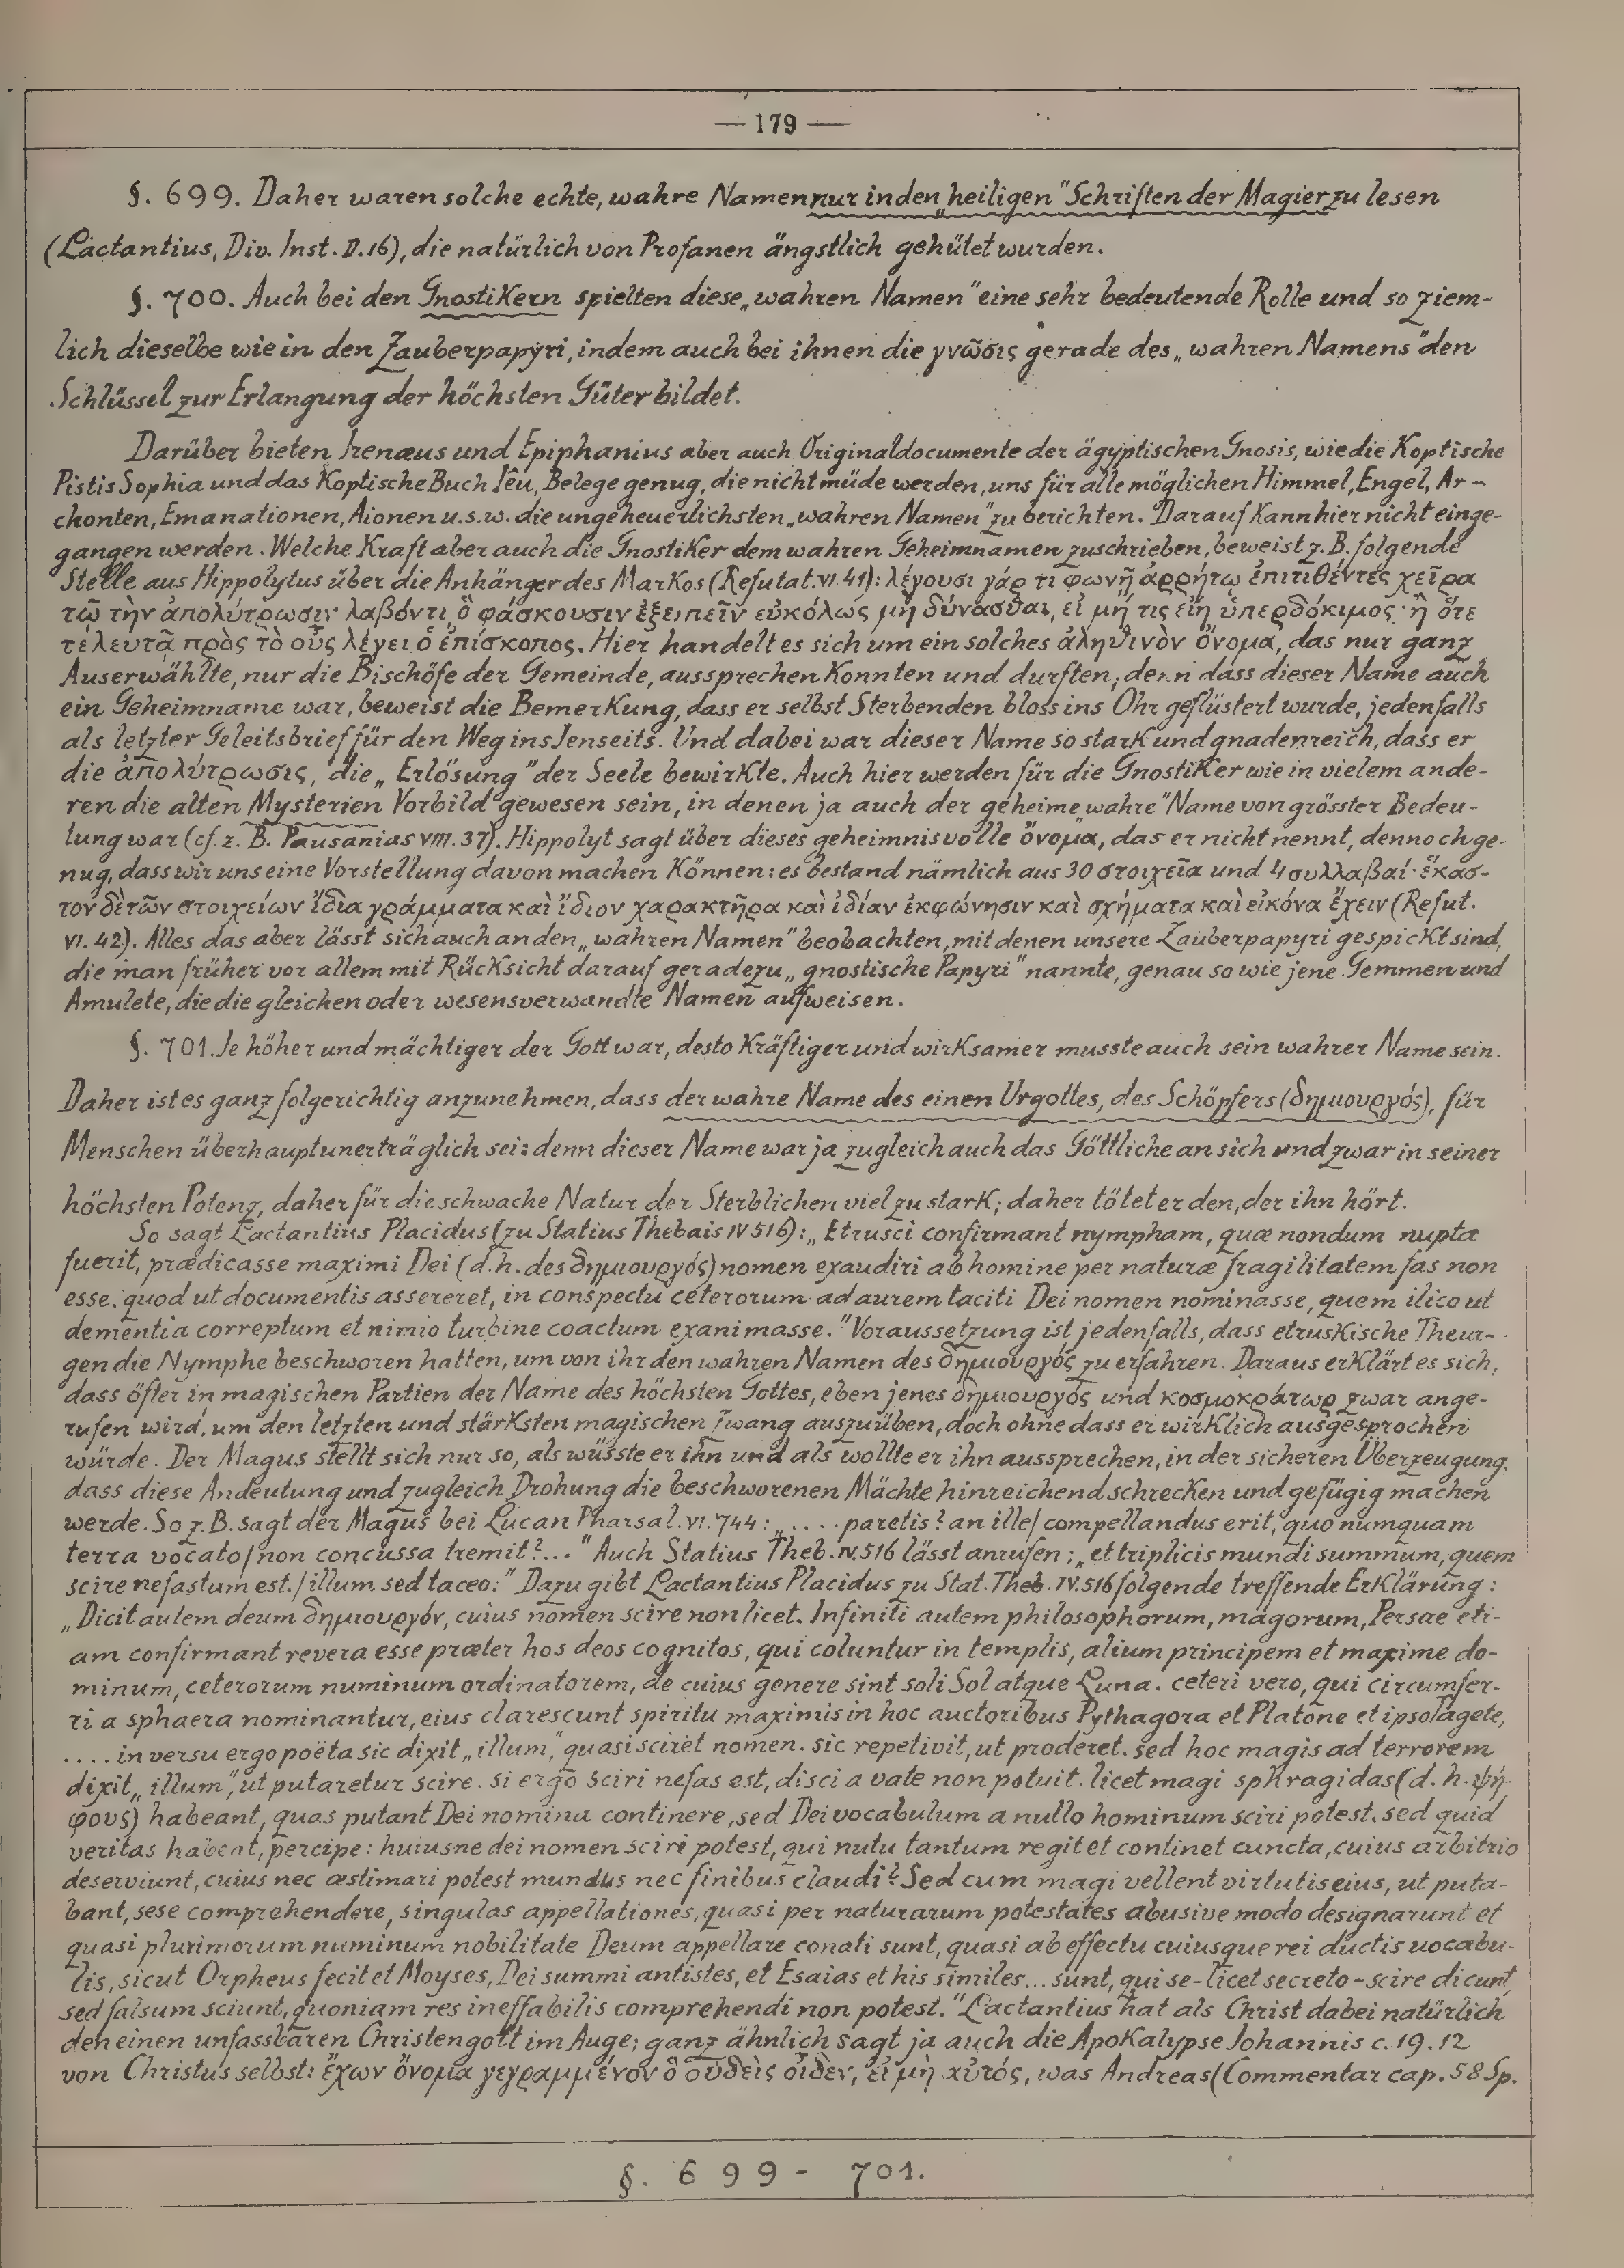 — 179 —
§. 699. Daher waren solche echte, wahre Namen nur in den „heiligen" Schriften der Magier zu lesen
(Lactantius, Div. Inst. II. 16), die natürlich von Profanen ängstlich gehütet wurden.
§. 700. Auch bei den Gnostikern spielten diese „wahren Namen" eine sehr bedeutende Rolle und so ziem-
lich dieselbe wie in den Zauberpapyri, indem auch bei ihnen die γνῶσις gerade des „wahren Namens" den
Schlüssel zur Erlangung der höchsten Güter bildet.
Darüber bieten Irenæus und Epiphanius aber auch Originaldocumente der ägyptischen Gnosis, wie die Koptische
Pistis Sophia und das Koptische Buch Iêu, Belege genug, die nicht müde werden, uns für alle möglichen Himmel, Engel, Ar-
chonten, Emanationen, Aionen u.s.w. die ungeheuerlichsten „wahren Namen" zu berichten. Darauf kann hier nicht einge-
gangen werden. Welche Kraft aber auch die Gnostiker dem wahren Geheimnamen zuschrieben, beweist z.B. folgende
Stelle aus Hippolytus über die Anhänger des Markos (Refutat. VI. 41): λέγουσι γάρ τι φωνῇ ἀρρήτῳ ἐπιτιθέντες χεῖρα
τῷ τὴν ἀπολύτρωσιν λαβόντι, ὃ φάσκουσιν ἐξειπεῖν εὐκόλως μὴ δύνασθαι, εἰ μή τις εἴη ὑπερδόκιμος· ἢ ὅτε
τελευτᾷ πρὸς τὸ οὖς λέγει ὁ ἐπίσκοπος. Hier handelt es sich um ein solches ἀληθινὸν ὄνομα, das nur ganz
Auserwählte, nur die Bischöfe der Gemeinde, aussprechen konnten und durften; denn dass dieser Name auch
ein Geheimname war, beweist die Bemerkung, dass er selbst Sterbenden bloss ins Ohr geflüstert wurde, jedenfalls
als letzter Geleitsbrief für den Weg ins Jenseits. Und dabei war dieser Name so stark und gnadenreich, dass er
die ἀπολύτρωσις, die „Erlösung" der Seele bewirkte. Auch hier werden für die Gnostiker wie in vielem ande-
ren die alten Mysterien Vorbild gewesen sein, in denen ja auch der geheime „wahre" Name von grösster Bedeu-
tung war (cf. z. B. Pausanias VIII. 37). Hippolyt sagt über dieses geheimnisvolle ὄνομα, das er nicht nennt, dennoch ge-
nug, dass wir uns eine Vorstellung davon machen können: es bestand nämlich aus 30 στοιχεῖα und 4 συλλαβαί· ἕκασ-
τον δὲ τῶν στοιχείων ἴδια γράμματα καὶ ἴδιον χαρακτῆρα καὶ ἰδίαν ἐκφώνησιν καὶ σχήματα καὶ εἰκόνα ἔχειν (Refut.
VI. 42). Alles das aber lässt sich auch an den „wahren Namen" beobachten, mit denen unsere Zauberpapyri gespickt sind,
die man früher vor allem mit Rücksicht darauf geradezu „gnostische Papyri" nannte, genau so wie jene Gemmen und
Amulete, die die gleichen oder wesensverwandte Namen aufweisen.
§. 701. Je höher und mächtiger der Gott war, desto kräftiger und wirksamer musste auch sein wahrer Name sein.
Daher ist es ganz folgerichtig anzunehmen, dass der wahre Name des einen Urgottes, des Schöpfers (δημιουργός), für
Menschen überhaupt unerträglich sei: denn dieser Name war ja zugleich auch das Göttliche an sich und zwar in seiner
höchsten Potenz, daher für die schwache Natur der Sterblichen viel zu stark; daher tötet er den, der ihn hört.
So sagt Lactantius Placidus (zu Statius Thebais IV 516): „Etrusci confirmant nympham, quæ nondum nupta
fuerit, prædicasse maximi Dei (d.h. des δημιουργός) nomen exaudiri ab homine per naturæ fragilitatem fas non
esse. quod ut documentis assereret, in conspectu ceterorum ad aurem tauri Dei nomen nominasse, quem ilico ut
dementia correptum et nimio turbine coactum exanimasse." Voraussetzung ist jedenfalls, dass etruskische Theur-
gen die Nymphe beschworen hatten, um von ihr den wahren Namen des δημιουργός zu erfahren. Daraus erklärt es sich,
dass öfter in magischen Partien der Name des höchsten Gottes, eben jenes δημιουργός und κοσμοκράτωρ zwar ange-
rufen wird, um den letzten und stärksten magischen Zwang auszuüben, doch ohne dass er wirklich ausgesprochen
würde. Der Magus stellt sich nur so, als wüsste er ihn und als wollte er ihn aussprechen, in der sicheren Überzeugung,
dass diese Andeutung und zugleich Drohung die beschworenen Mächte hinreichend schrecken und gefügig machen
werde. So z.B. sagt der Magus bei Lucan Pharsal. VI. 744: „.... paretis? an ille/ compellandus erit, quo numquam
terra vocato/ non concussa tremit?..." Auch Statius Theb. IV. 516 lässt anrufen: „et triplicis mundi summum, quem
scire nefastum est./ illum sed taceo." Dazu gibt Lactantius Placidus zu Stat. Theb. IV. 516 folgende treffende Erklärung:
„Dicit autem deum δημιουργόν, cuius nomen scire non licet. Infiniti autem philosophorum, magorum, Persae eti-
am confirmant revera esse præter hos deos cognitos, qui coluntur in templis, alium principem et maxime do-
minum, ceterorum numinum ordinatorem, de cuius genere sint soli Sol atque Luna. ceteri vero, qui circumfer-
ri a sphaera nominantur, eius clarescunt spiritu maximis in hoc auctoribus Pythagora et Platone et ipso Tagete,
.... in versu ergo poëta sic dixit „illum", quasi sciret nomen. sic repetivit, ut proderet. sed hoc magis ad terrorem
dixit „illum", ut putaretur scire. si ergo sciri nefas est, disci a vate non potuit. licet magi sphragidas (d. h. ψή-
φους) habeant, quas putant Dei nomina continere, sed Dei vocabulum a nullo hominum sciri potest. sed quid
veritas habeat, percipe: huiusne dei nomen sciri potest, qui nutu tantum regit et continet cuncta, cuius arbitrio
deserviunt, cuius nec æstimari potest mundus nec finibus claudi? Sed cum magi vellent virtutis eius, ut puta-
bant, sese comprehendere, singulas appellationes, quasi per naturarum potestates abusive modo designarunt et
quasi plurimorum numinum nobilitate Deum appellare conati sunt, quasi ab effectu cuiusque rei ductis vocabu-
lis, sicut Orpheus fecit et Moyses, Dei summi antistes, et Esaias et his similes... sunt, qui se - licet secreto - scire dicunt,
sed falsum sciunt, quoniam res ineffabilis comprehendi non potest." Lactantius hat als Christ dabei natürlich
den einen unfassbaren Christengott im Auge; ganz ähnlich sagt ja auch die Apokalypse Johannis c. 19. 12
von Christus selbst: ἔχων ὄνομα γεγραμμένον ὃ οὐδεὶς οἶδεν, εἰ μὴ αὐτός, was Andreas (Commentar cap. 58 Sp.
§. 699 - 701.